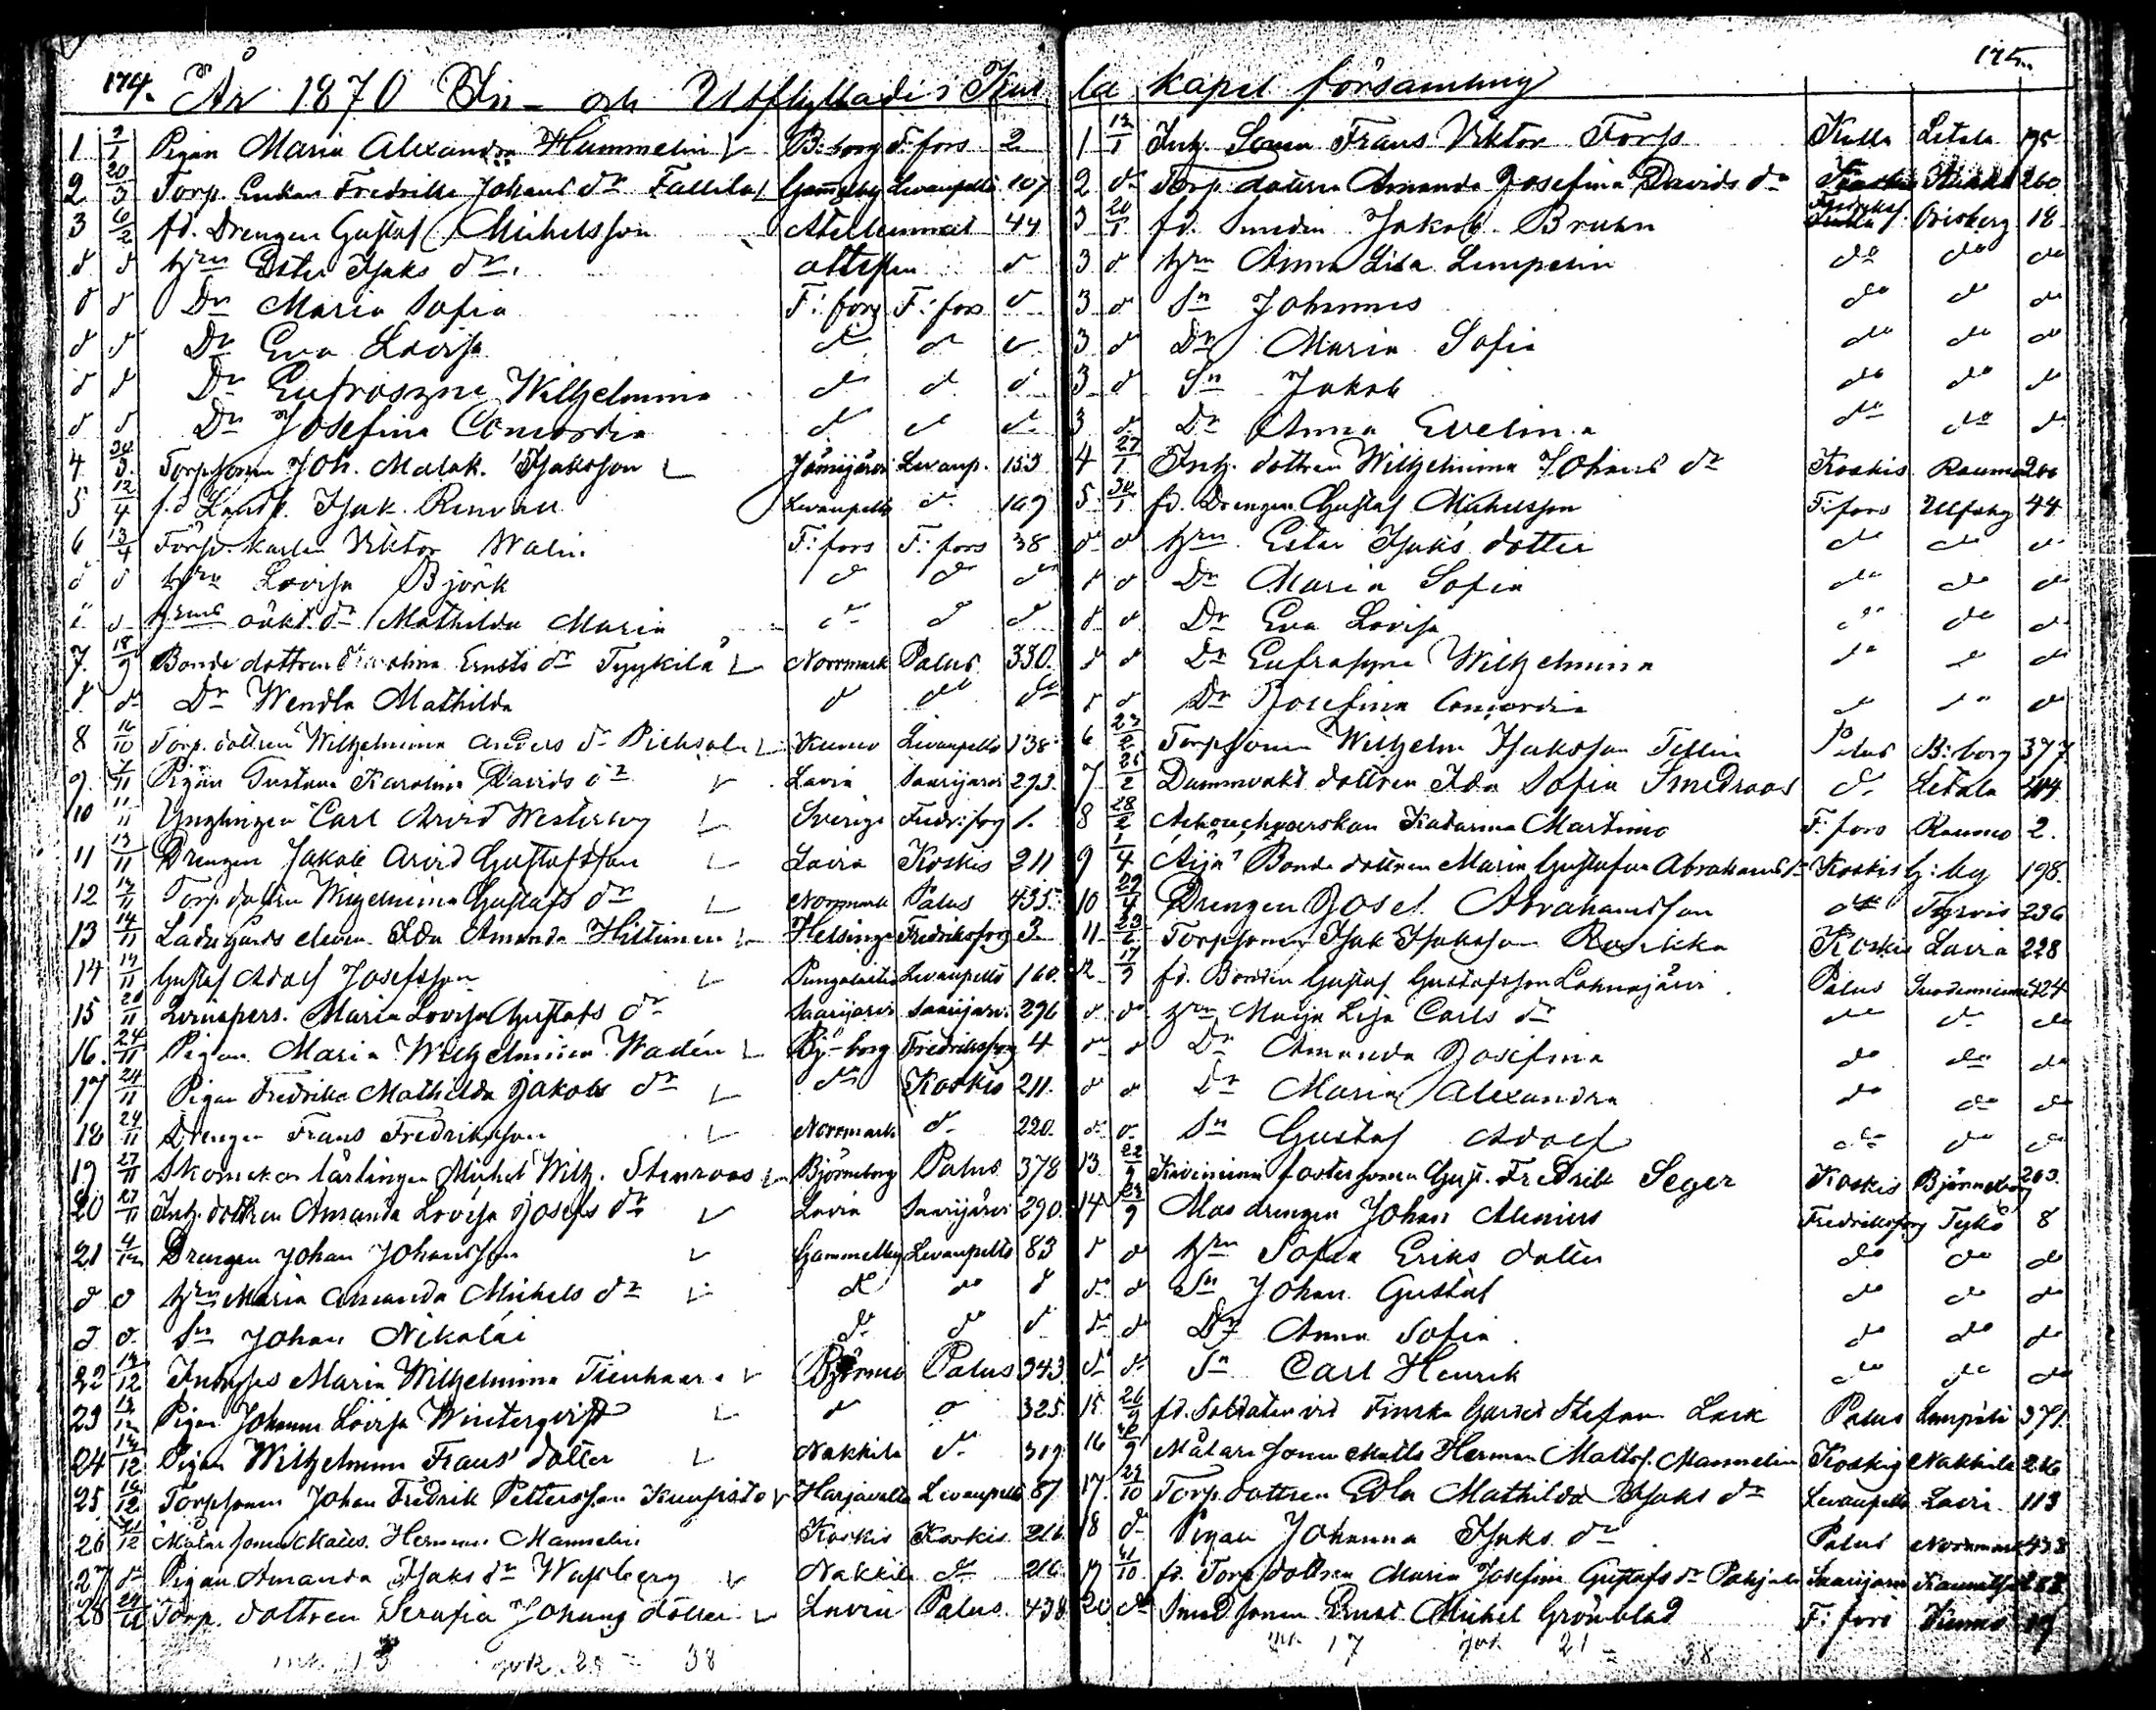 174.
År 1870 In- och Utflyttade i Kul
1 2/1 Pigan Maria Alexandra Hammelin B:borg F:fors 2
2 20/3 Torp. Enkan Fredrika Johans dr Fallila Gammelby Levanpelto 107
3 6/2 fd. Drengen Gustaf Michelsson 44
d d hrn Ester Isaks dr. attesten d
d d Dr Maria Sofia F:forg F:fors d
d d Dr Eva Lovisa d d d
d d Dr Eufrosyne Wilhelmina d d d
d d Dr Josefina Concordia d d d
4 30/3 Torpsonen Joh. Malak. Isaksson Jämijärvi Levanp. 153
5 12/4 f.d Isak Renvall Levanpelto d 109
6 13/4 Förp. karlen Viktor Walin F:fors F:fors 38
d d hrn Lovisa Björk d d d
d d hrns oäkt. dr Mathilda Maria d d d
7. 18/9 Bonde dottren Karolina Ernsts dr Tyykilä Norrmark Palus 330.
d d Dr Wendla Mathilda d do do
8 16/10 Torp. dottren Wilhelmina Anders dr Kumo Levanpelto 138
9. 7/11 Pigan Gustava Karolina Davids dr Lavia Saarijärvi 293.
10 11/11 Ynglingen Carl Arvid Westerberg Sverige Fredr:forg 1.
11 13/11 Drengen Jakob Arvid Gustafsson Lavia Koskis 211
12 13/11 Torp dottren Wilhelmina Gustafs dr Norrmark Palus 435.
13 14/11 Ladugårds eleven Ida Amanda Hiltunen Helsinge Fredriksforg 3
14 14/11 Gustaf Adolf Josefsson Pungalaitio Levanpelto 160.
15 20/11 Maria Lovisa Gustafs dr Saarijärvi Saarijärvi 296
16. 24/11 Pigan Maria Wilhelmina Wadén Bj-borg Fredriksforg 4
17 24/11 Pigan Fredrika Mathilda Jakobs dr do Koskis 211.
18 24/11 Drengen Frans Fredriksson Norrmark d 220.
19 27/11 Skomakar lärlingen Michel Wilh. Stenroos Björneborg Palus 378
20 27/11 Inh. dottren Amanda Lovisa Josefs dr Lavia Saarijärvi 290.
21 4/12 Drengen Johan Johansson Gammelby Levanpelto 83
d d hrn Maria Amanda Michels dr d do d
d d Sn Johan Nikolai d d d
22 13/12 Inhyses Maria Wilhelmina Tienhaara Palus 343
23 13/12 Pigan Johanna Lovisa Winterqvist d d 325
24 13/12 Pigan Wilhelmina Frans dotter Nakkila d 319
25 16/12 Torpsonen Johan Fredrik Pettersson Kuusisto Harjavalta Levanpelto 87
26 /12 Målar sonen Matts Herman Mannelin Koskis Koskis 216
27 do Pigan Amanda Isaks dr Wahlberg Nakkila do 216
28 Torp. dottren Serafia Johans dotter Lavia Palus 438
mk. 13 qvk. 25 = 38
175.
la kapel församling
1 12/1 Inh. Sonen Frans Viktor Fors Kulla Letala 195
2 do Torp. dottren Amanda Josefina Davids dr 260
3 20/1 fd. Smeden Jakob Bruun Fredriksf. Brisberg 18
3 d hrn Anna Lisa Lemperin do do do
3 d Sn Johannes do do do
3 d Dr Maria Sofia do do do
3 d Sn Jakob do do do
3 d Dr Anna Evelina do do d
4 27/1 Inh. dottren Wilhelmina Johans dr Koskis Raumo 200
5 30/1 fd. Drengen Gustaf Michelsson F:fors Ulfsby 44
d d hrn Ester Isaks dotter do do do
d d Dr Maria Sofia do do do
d d Dr Eva Lovisa do do do
d d Dr Eufrosyne Wilhelmina do do do
d d Dr Josefina Concordia do do do
6 23/2 Torpsonen Wilhelm Isaksson Tellin Palus B:borg 377
7 26/2 Dammvakt dottren Ida Sofia Smedroos d Letala 404
8 28/2 Ackouchoerskan Katarina Martino F:fors Raumo 2.
9 1/4 Bonde dottren Maria Gustafva Abrahams dr Koskis 198.
10 29/4 Drengen Josef Abrahamsson do Tyrvis 236
11 23/6 Torpsonen Isak Isaksson Koskis Lavia 228
12 17/9 fd. Bonden Gustaf Gustafsson Lahnajärvi Palus Suodenniemi 424
d do hrn Maija Lisa Carls dr do do do
d d Dr Amanda Josefina do do do
d d Dr Maria Alexandra do do do
d d Sn Gustaf Adolf do do do
13 22/9 fostersonen Gust. Fredrik Seger Koskis Björneborg 203.
14 23/9 Mas drengen Johan Alenius Fredriksforg Tykö 8
d d hrn Sofia Eriks dotter do do do
d d Sn Johan Gustaf do do do
d d Dr Anna Sofia do do do
d d Sn Carl Henrik do do do
15 26/9 fd. Soldaten vid Finska Gardet Stefan Lask Palus Lempälä 371.
16 Målare sonen Matts Herman Matts s. Mannelin Koskis Nakkila 216
17 29/10 Torp. dottren Edla Mathilda Isaks dr Levanpelto Lavia 113
18 do Pigan Johanna Isaks dr Palus Norrmark 433
19 31/10 fd. Torp dottren Maria Josefina Gustafs dr Pohjala Saarijärvi 283
20 do Smed sonen Ernst Michel Grönblad F:fors Kumo 19
mk 17 qvk 21 = 38